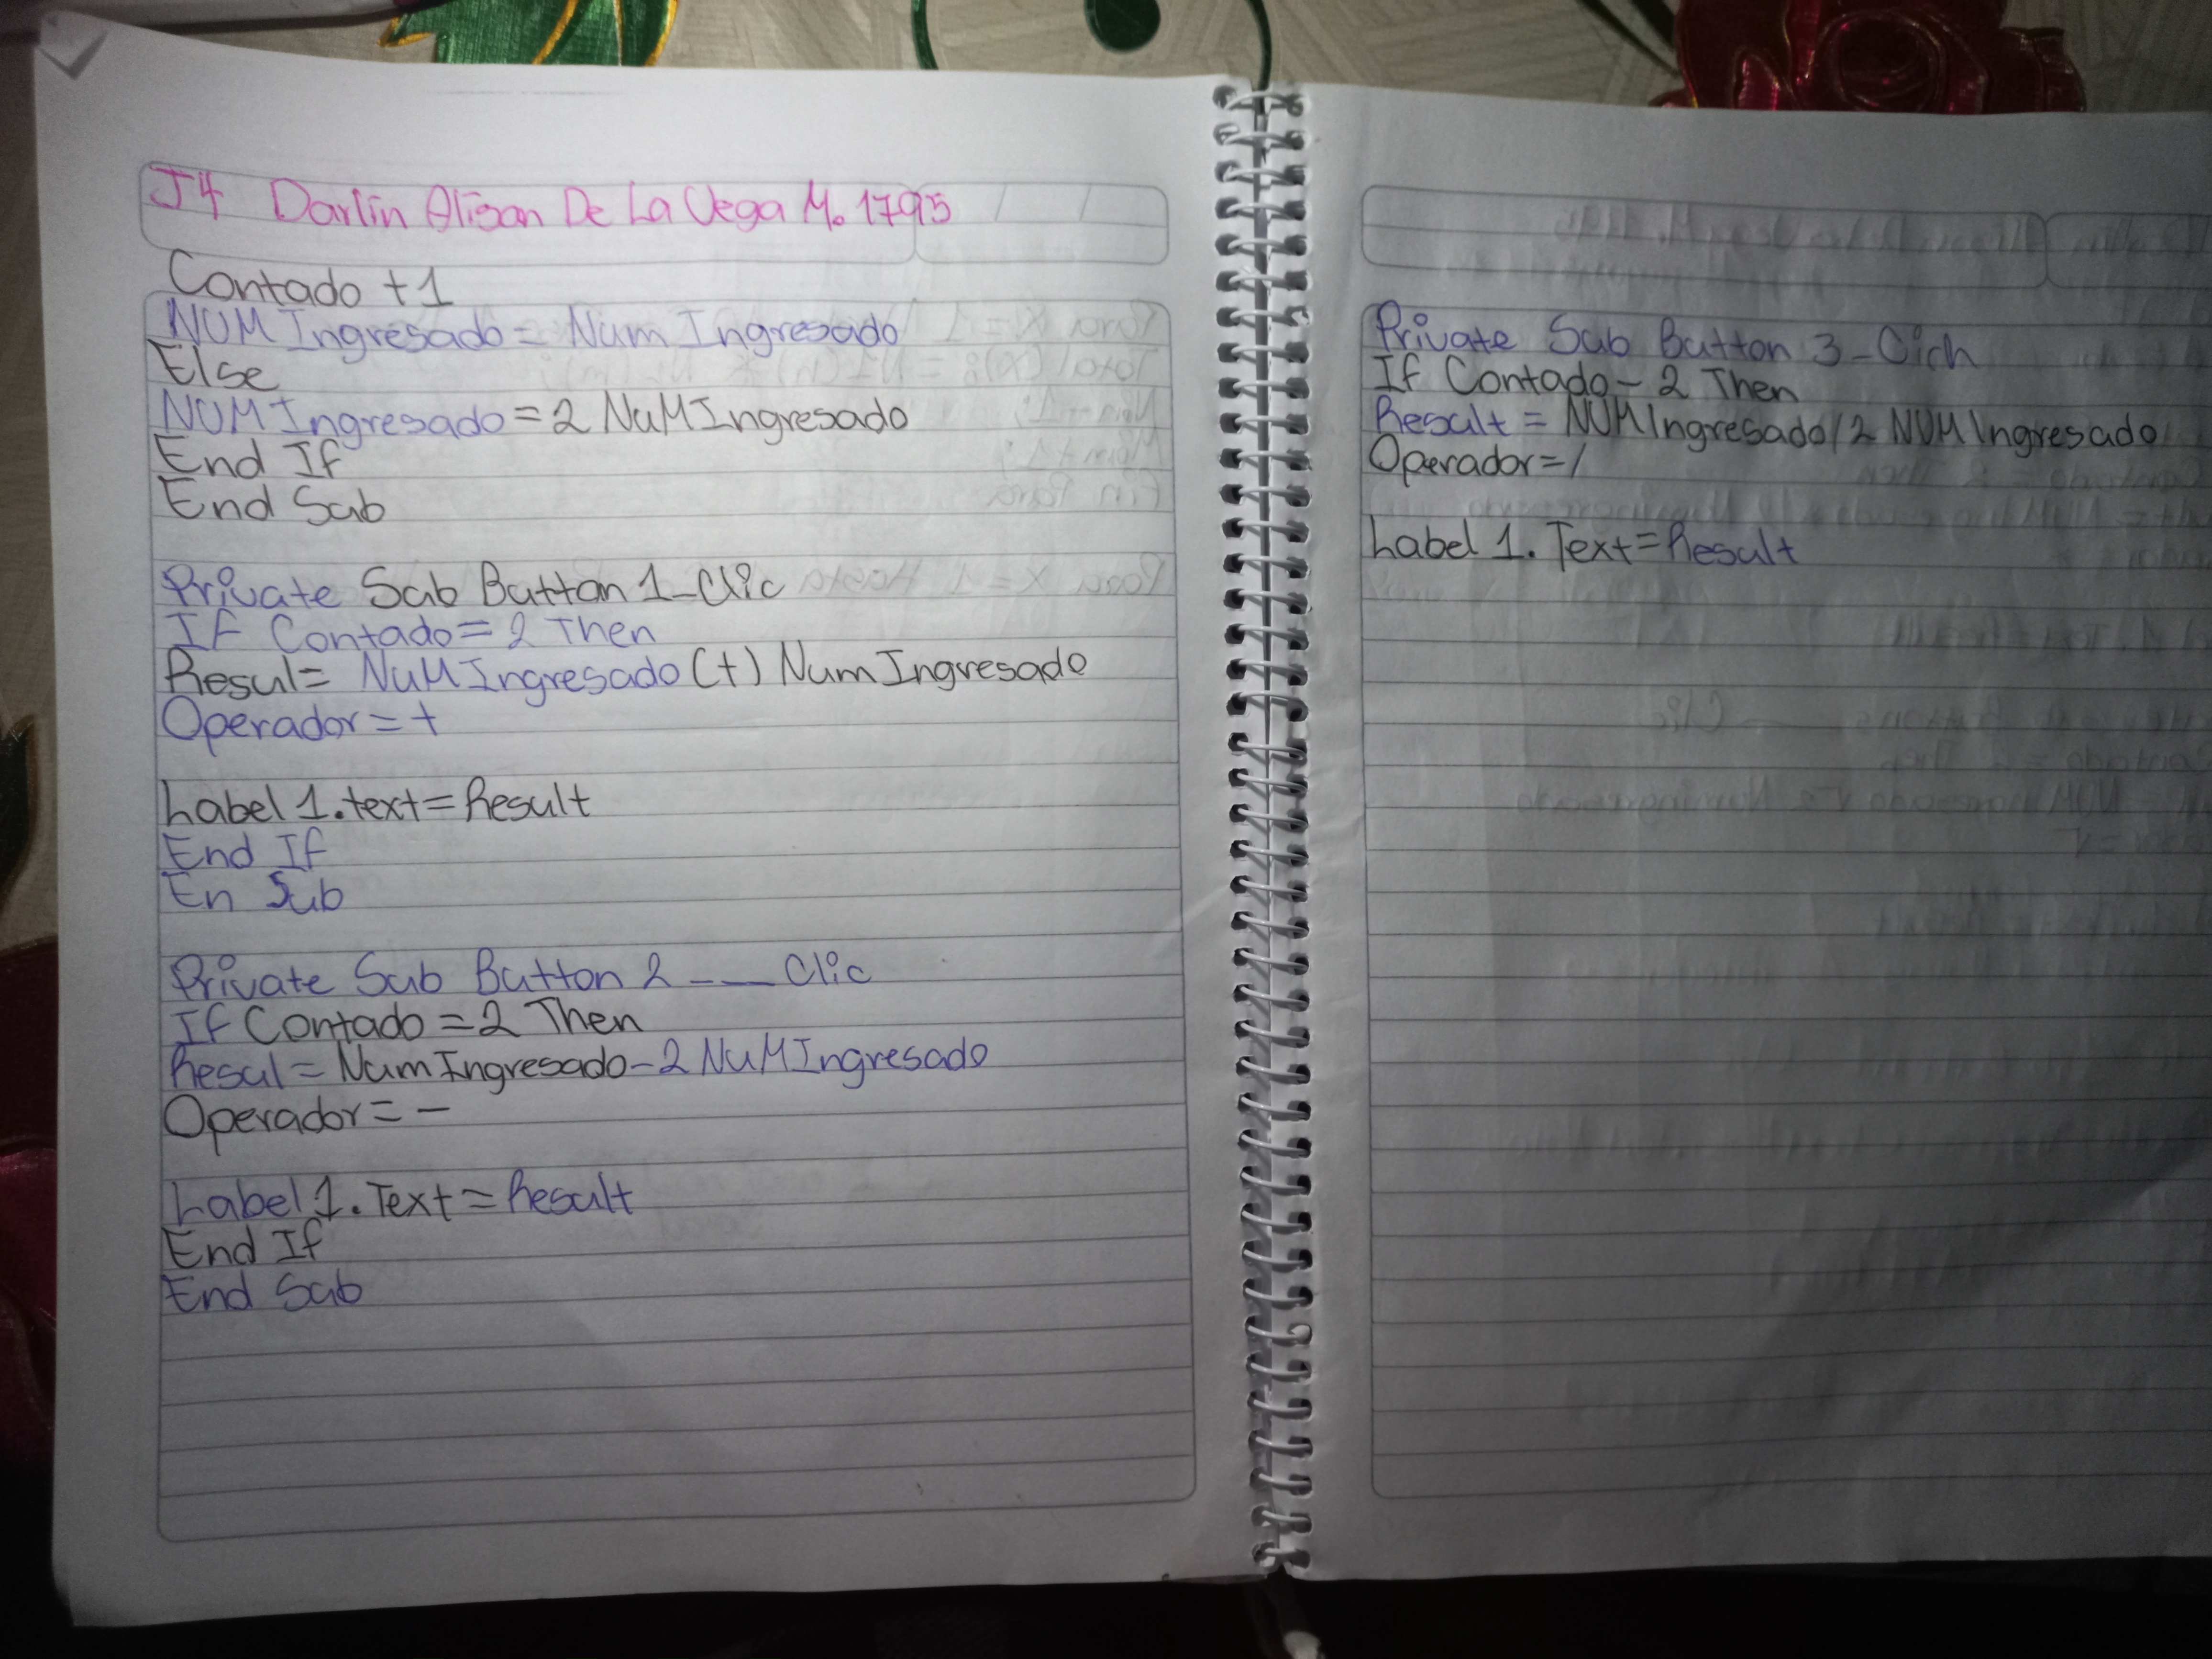 J4 Darlin Alison De La Vega M. 1795
Contado +1
NUMIngresado = Num Ingresado
Else
NUMIngresado = 2 NuMIngresado
End If
End Sub
Private Sub Button 1_Clic
If Contado = 2 Then
Resul= NuMIngresado (+) NumIngresado
Operador = +
Label 1.text = Result
End If
En Sub
Private Sub Button 2 __ Clic
If Contado = 2 Then
Resul = NumIngresado - 2 NuMIngresado
Operador = -
Label 1. Text = Result
End If
End Sub
Private Sub Button 3_Cich
If Contado - 2 Then
Result = NUMIngresado / 2 NUMIngresado
Operador = /
Label 1. Text = Result